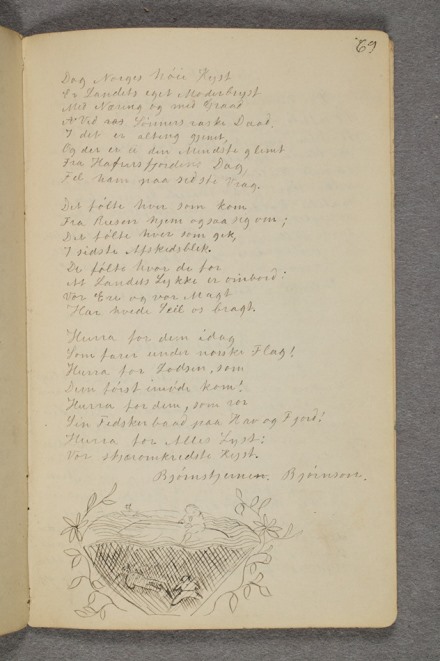 69
Dog Norges höie Kyst
Er Landets eget Moderbryst
Med Næring og med Graad
Ved Sönners raske Daad.
I det er alting gjemt,
Og der er ei den Mindste glemt
Fra Hafursfjordens Dag,
Til ham paa sidste Vrag.
Det fölte hver som kom
Fra Reisen hjem og saa sig om;
Det fölte hver som gik,
I sidste Afskedsblik.
De fölte hvor de for
At Landets Lykke er ombord:
Vor Ære og vor Magt
Har hvide Seil os bragt.
Hurra for dem idag
Som farer under norske Flag!
Hurra for Lodsen, som
Dem först imöde kom!
Hurra for dem, som ror
Sin Fiskerbaad paa Hav og Fjord!
Hurra for Alles Lyst:
Vor skjæromkredste Kyst.
Björnstjerne Björnson.